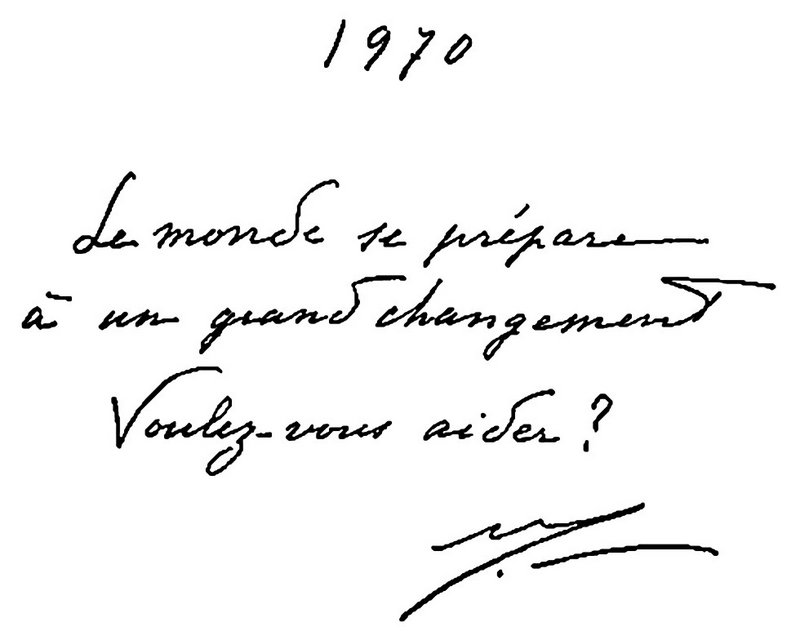 1970
Le monde se prépare
à un grand changement
Voulez-vous aider ?